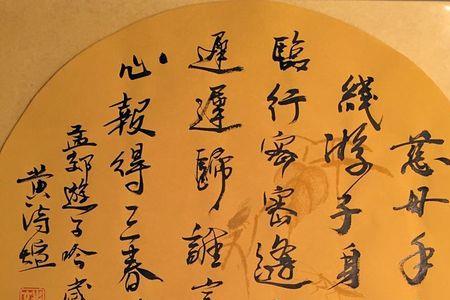 慈母手
綫游子身
臨行密密逢
遲遲歸誰言
心報得三春
孟郊遊子吟
黃詩